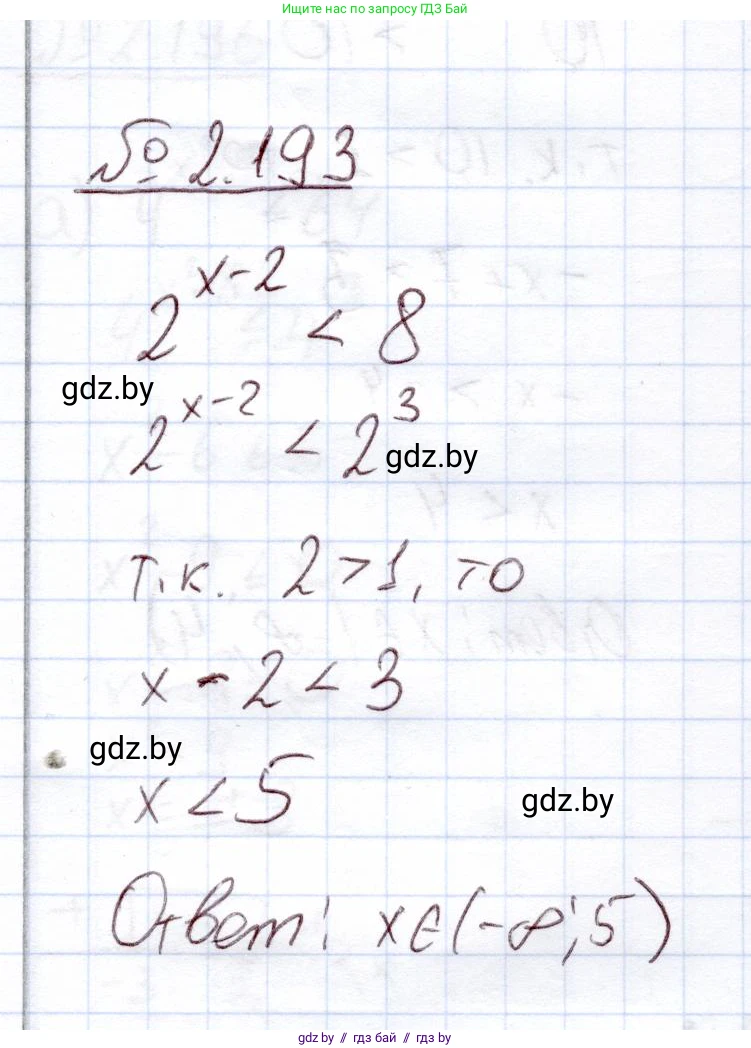 Ищите нас по запросу ГДЗ Бай
№ 2.193
2^{x-2} < 8
gdz.by
2^{x-2} < 2^3
gdz.by
т.к. 2 > 1, то
x - 2 < 3
gdz.by
x < 5
gdz.by
Ответ: x ∈ (-∞; 5)
gdz.by // гдз бай // гдз by